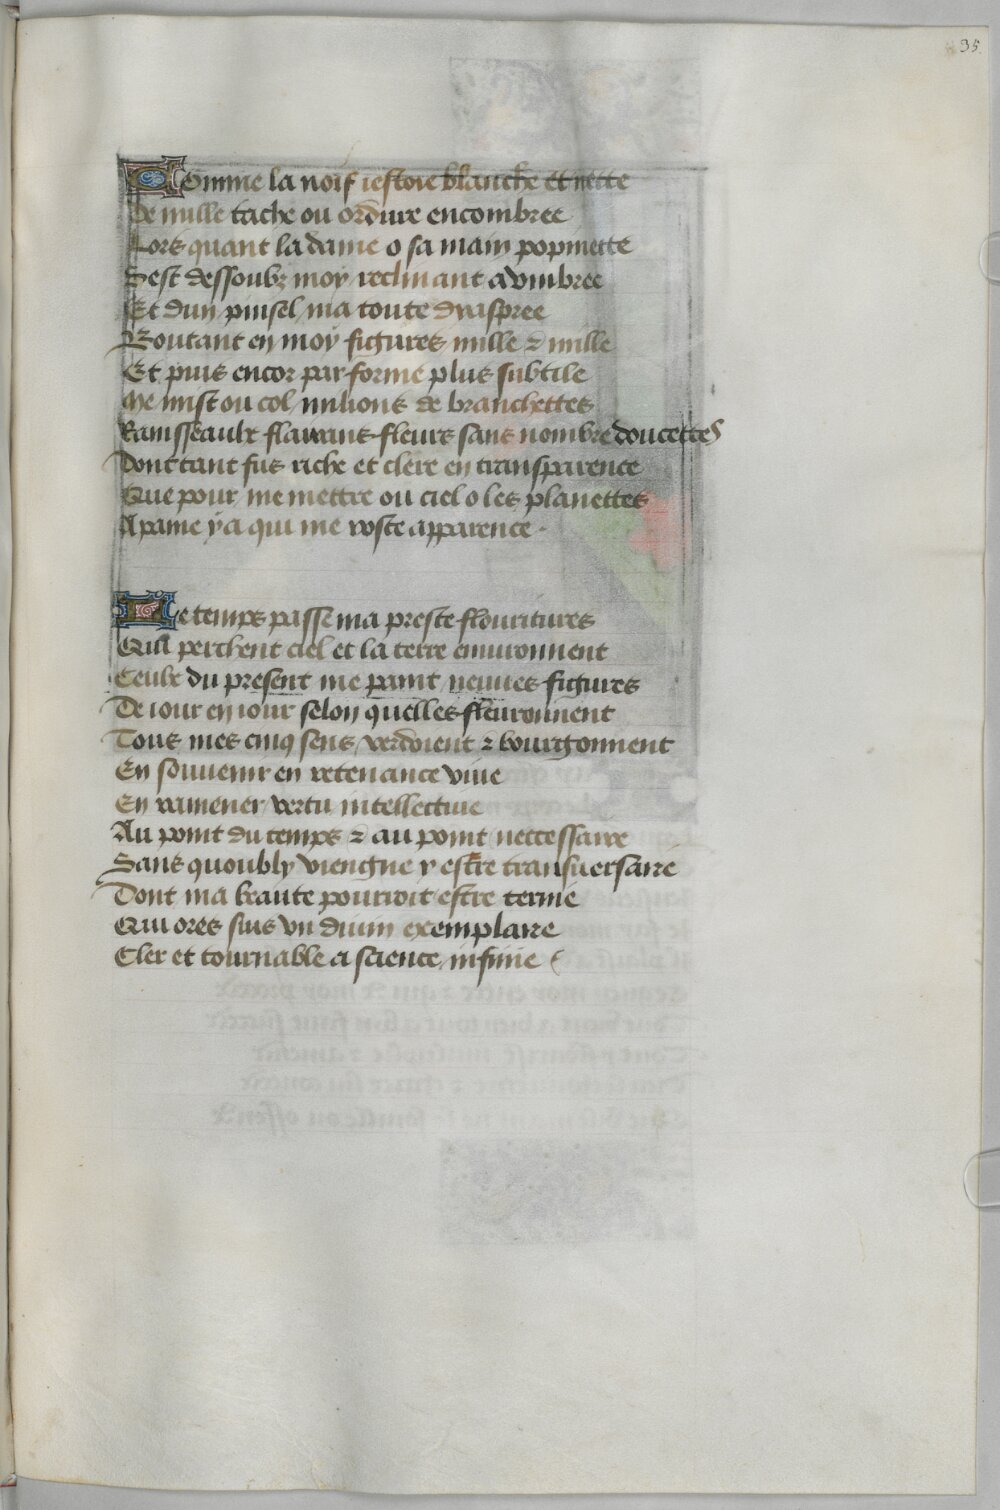 35
Comme la noif iestoie blanche et nette
De nulle tache ou ordure encombree
Lors quant la dame o sa main popinette
Sest dessoubz moy reclinant aombree
Et dun pinsel ma toute dyaspree
Boutant en moy figures mille & mille
Et puis encor par forme plus subtile
Me mist ou col milions de branchettes
Rainsseaulx flairans fleurs sans nombre doucettes
Dont tant fus riche et clere en transparence
Que pour me mettre ou ciel o les planettes
A paine y a qui me voste apparence
Le temps passe ma preste flouritures
Qui perchent ciel et la terre enuironnent
Ceulx du present me paint neuues figures
De iour en iour selon quelles fleuronnent
Tous mes cinq sens verdoient & bourgonnent
En souuenir en retenance viue
En ramener vertu intellectiue
Au point du temps & au point neccessaire
Sans quoubly viengne y estre transuersaire
Dont ma beaute pourroit estre ternie
Qui ores suis vn diuin exemplaire
Cler et tournable a science infinie